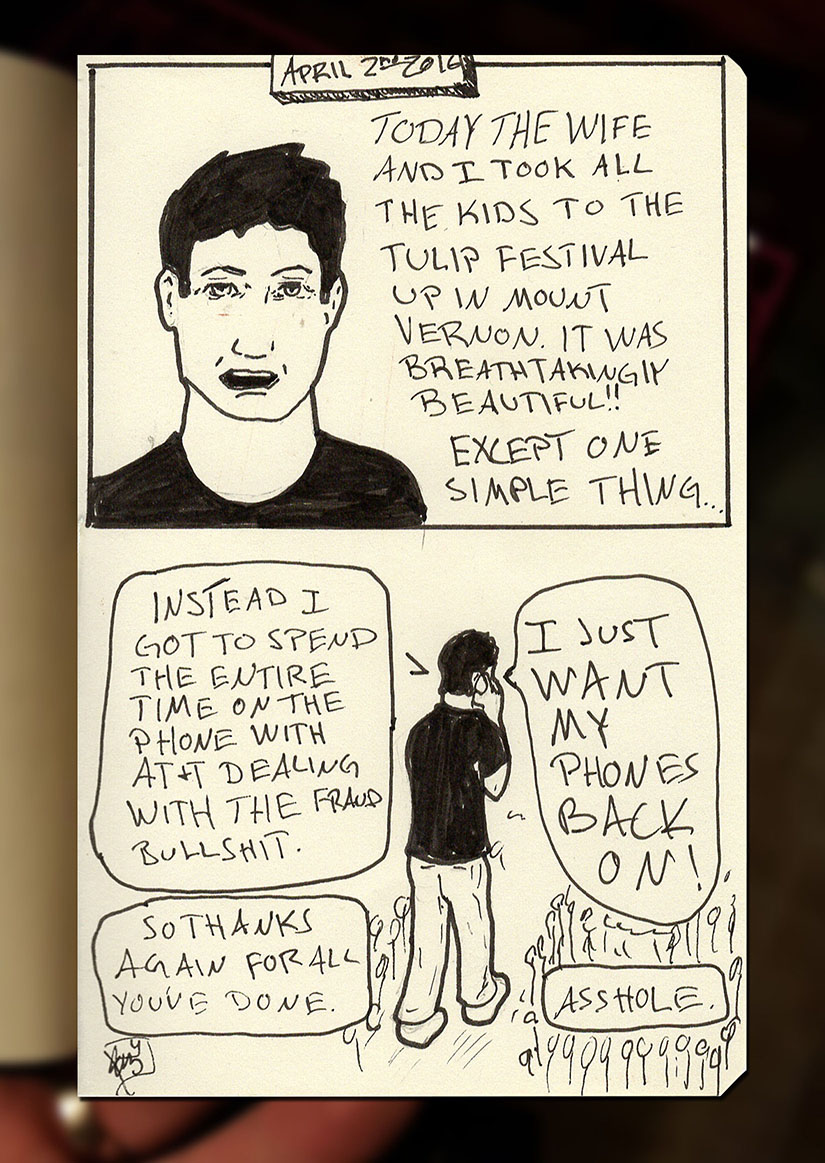 APRIL 2nd
TODAY THE WIFE
AND I TOOK ALL
THE KIDS TO THE
TULIP FESTIVAL
UP IN MOUNT
VERNON. IT WAS
BREATHTAKINGLY
BEAUTIFUL!!
EXCEPT ONE
SIMPLE THING...
INSTEAD I
GOT TO SPEND
THE ENTIRE
TIME ON THE
PHONE WITH
AT+T DEALING
WITH THE FRAUD
BULLSHIT.
I JUST
WANT
MY
PHONES
BACK
ON!
SO THANKS
AGAIN FOR ALL
YOU'VE DONE.
ASSHOLE.